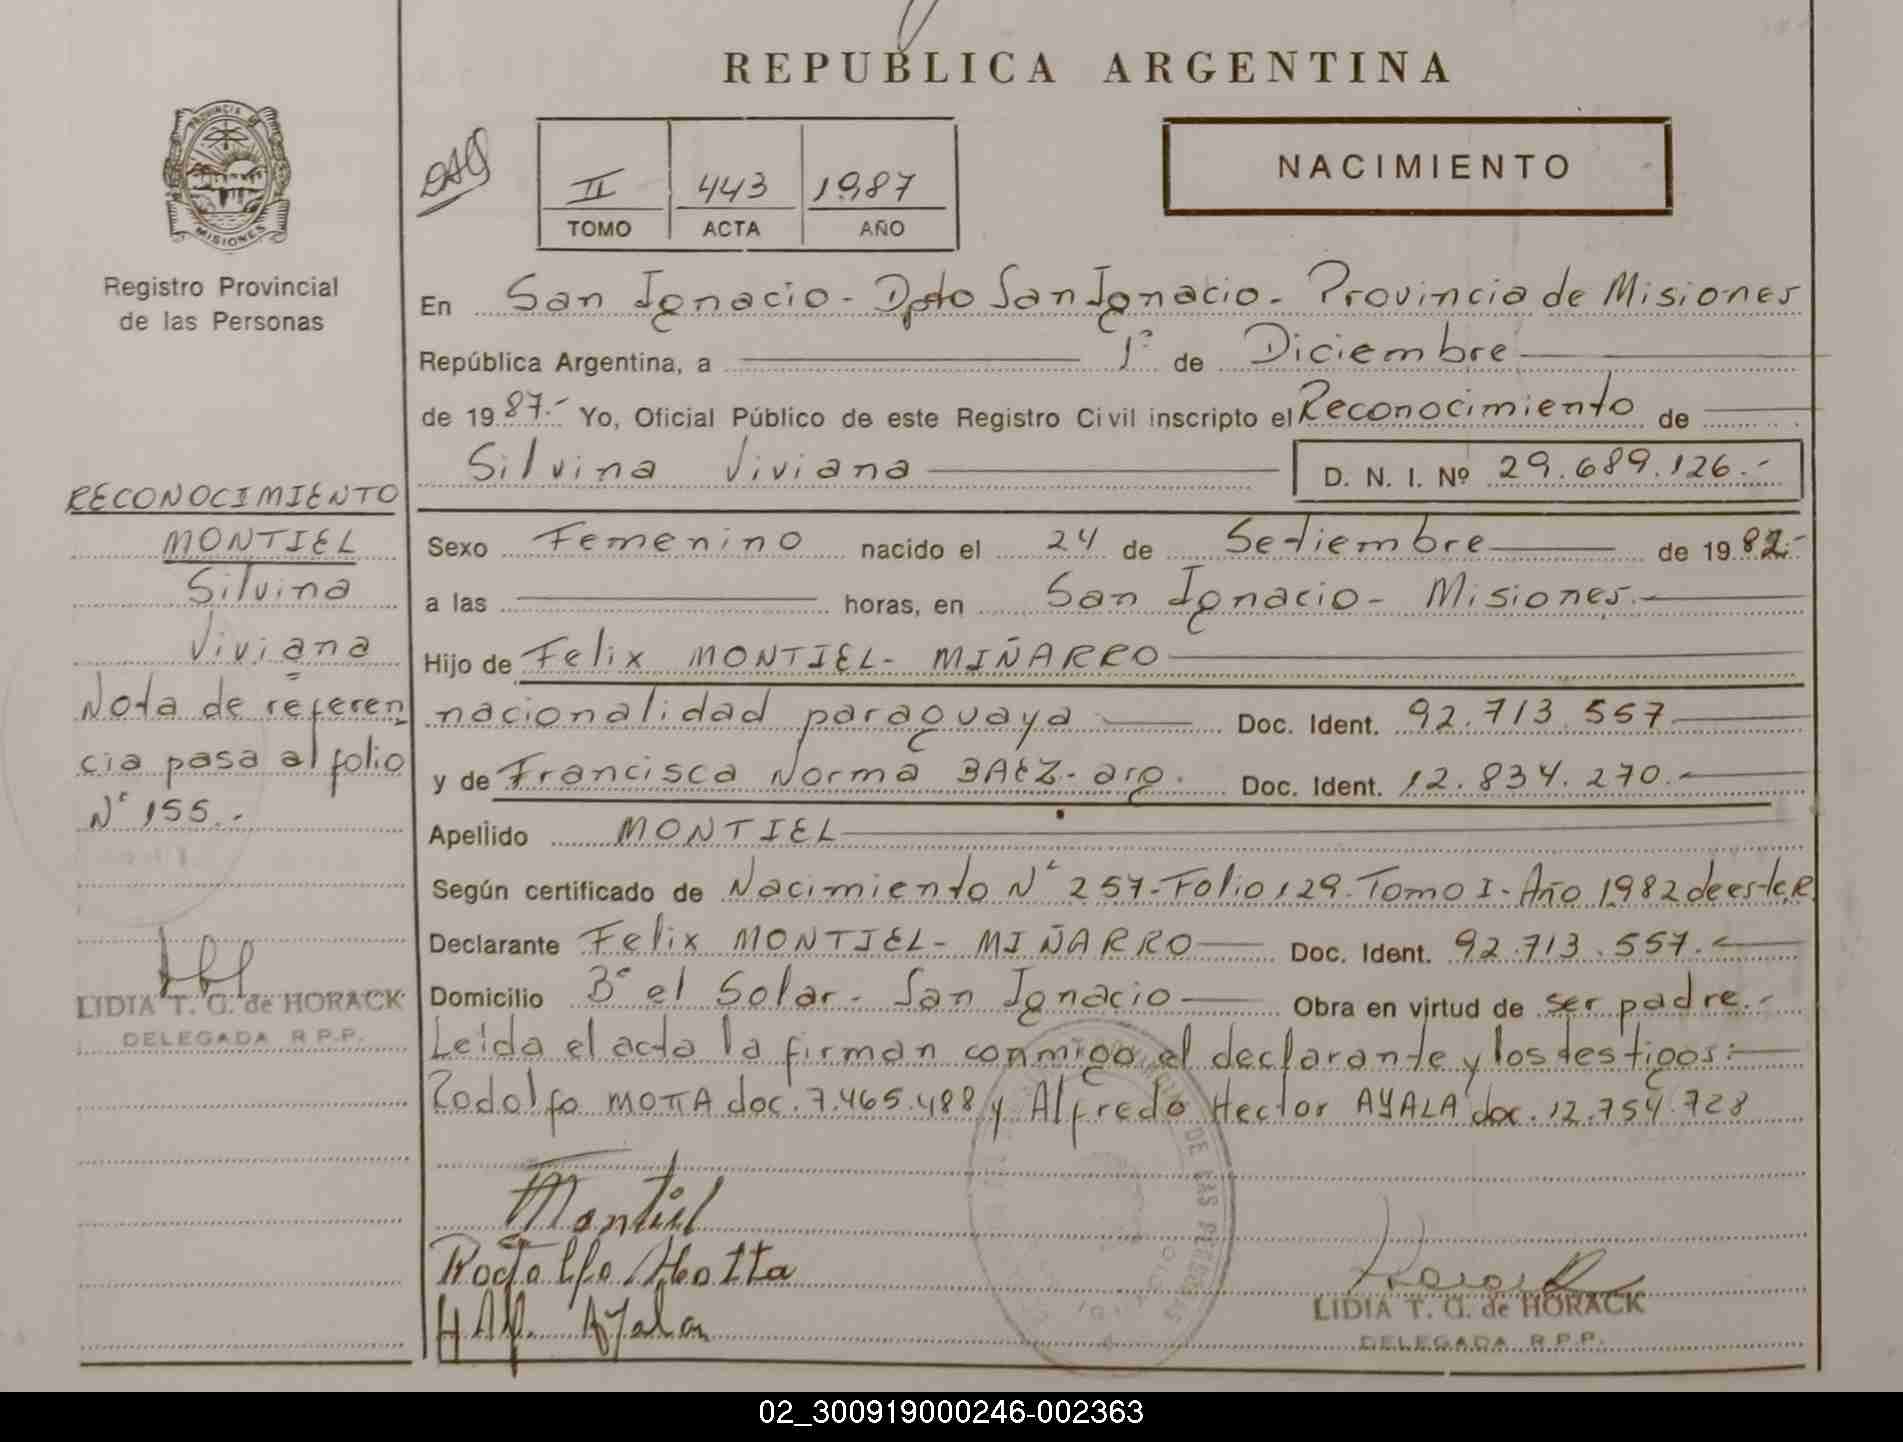 REPUBLICA ARGENTINA
PROVINCIA DE
MISIONES
Registro Provincial
de las Personas
II 443 1987
TOMO ACTA AÑO
NACIMIENTO
En San Ignacio - Dpto San Ignacio - Provincia de Misiones
República Argentina, a 1º de Diciembre
de 1987.- Yo, Oficial Público de este Registro Civil inscripto el Reconocimiento de
Silvina Viviana D. N. I. Nº 29.689.126.-
Sexo Femenino nacido el 24 de Setiembre de 1982.-
a las horas, en San Ignacio - Misiones.
Hijo de Felix MONTIEL - MIÑARRO
nacionalidad paraguaya Doc. Ident. 92.713.557
y de Francisca Norma BAEZ - arg. Doc. Ident. 12.834.270.-
Apellido MONTIEL
Según certificado de Nacimiento Nº 257 - Folio 129 - Tomo I - Año 1982 de este R.
Declarante Felix MONTIEL - MIÑARRO Doc. Ident. 92.713.557.
Domicilio Bº el Solar - San Ignacio Obra en virtud de ser padre.-
Leida el acta la firman conmigo el declarante y los testigos:
Rodolfo MOTTA doc. 7.465.488 y Alfredo Hector AYALA doc. 12.754.728
Montiel
Rodolfo Motta
Ayala
LIDIA T. G. de HORACK
DELEGADA R.P.P.
RECONOCIMIENTO
MONTIEL
Silvina
Viviana
Nota de referen
cia pasa al folio
Nº 155.-
LIDIA T. G. de HORACK
DELEGADA R.P.P.
DE LAS PERSONAS
02_300919000246-002363